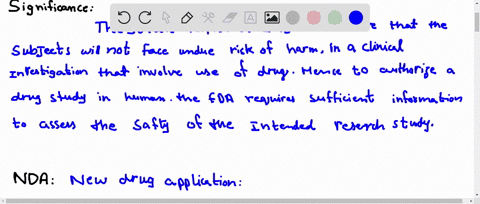 Significance:
The that the
Subjects will not face undue risk of harm. In a clinical
Investigation that involve use of drug. Hence to authorize a
drug study in human. the FDA requires sufficient information
to assess the Safty of the Intended research study.
NDA: New drug application: